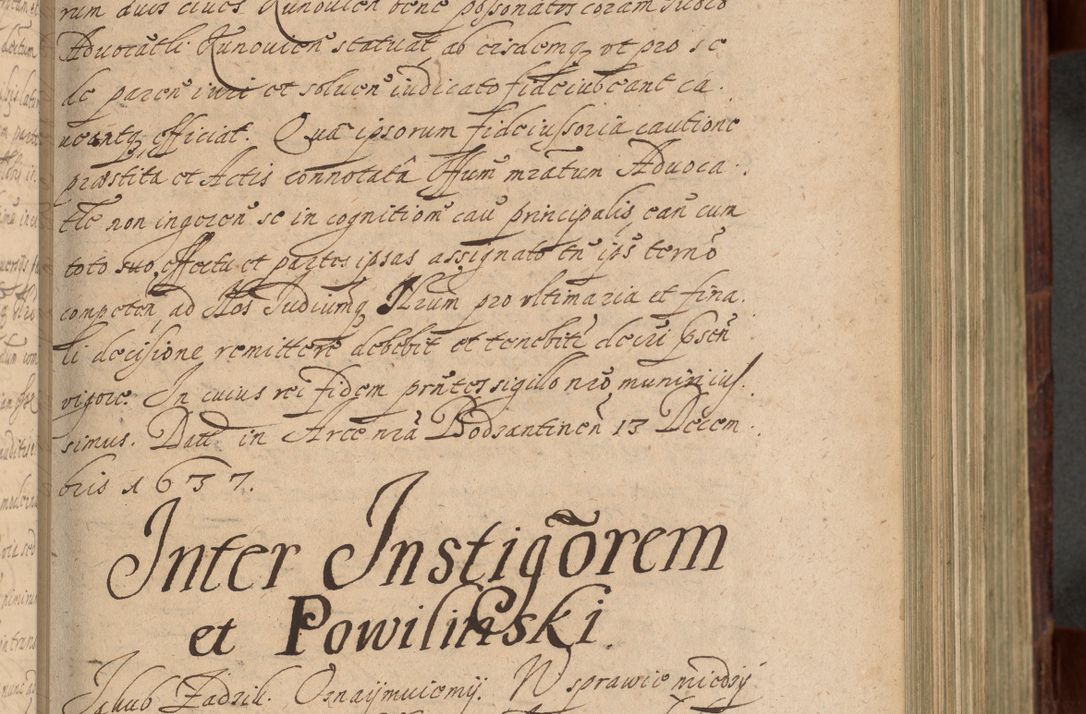 rum duos cives Kunovien bene possonatos coram Iudicio
Advocatli Kunovien statuat, ab eisdemq vt pro se
de paren iuri et soluen iudicato fideiubeant ca
veantq efficiat. Qua ipsorum fideiussoria cautione
præstita et Actis connotata Offum mratum Advoca
tle non ingeren se in cognitiom cau principalis ean cum
toto suo effectu et partes ipsas assignato tn ips termo
competen, ad Nos Iudiumq Nrum pro vltimaria et fina
li decisione remittere debebit et tenebitr decri Psen
vigore. In cuius rei fidem prntes sigillo nro muniri ius
simus. Datt in Arce nra Bodzantinen 13 Decem
bris 1637.
Inter Instigõrem
et Powilinski.
Jakub Zadzik. Oznaÿmuiemÿ. W sprawie miedzÿ